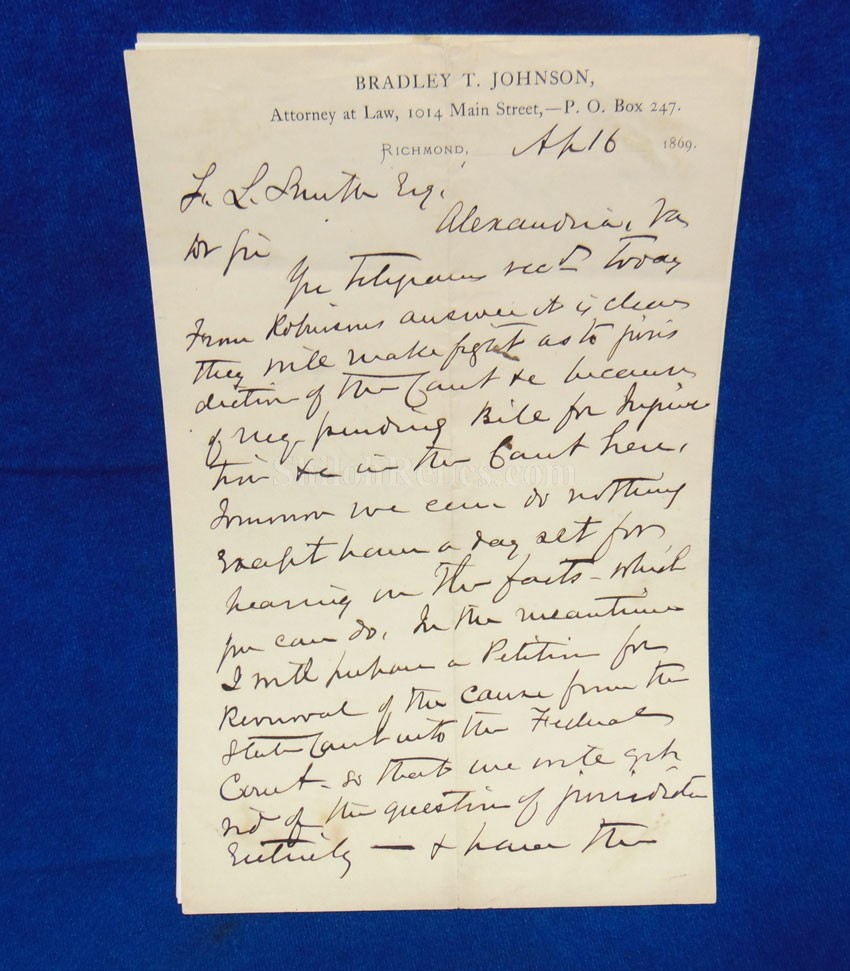 BRADLEY T. JOHNSON,
Attorney at Law, 1014 Main Street,—P. O. Box 247.
RICHMOND, Ap 16 1869.
L. Smith Esq.
Alexandria, Va
Dr Sir
Yr telegram recd Today
From Robinsons answer it is clear
they will make fight as to juris
diction of the Court &c because
of pending Bill for Injunc
tion &c in the Court here.
Tomorrow we can do nothing
Except have a day set for
hearing on the facts - which
you can do. In the meantime
I will prepare a Petition for
Removal of the cause from the
State Court into the Federal
Court - so that we will get
rid of the question of jurisdiction
Entirely — & have the
ShilohRelics.com